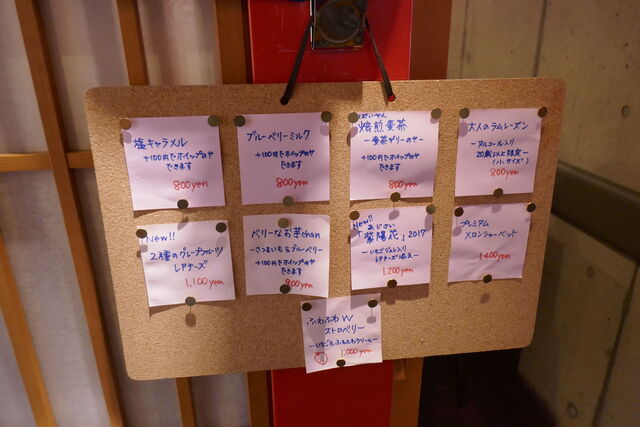 塩キャラメル
+100円でホイップのせ
できます
800yen
ブルーベリーミルク
+100円でホイップのせ
できます
800yen
ばいせん
焙煎麦茶
ー麦茶ゼリーのせー
+100円でホイップのせ
できます
800yen
大人のラムレーズン
ーアルコール入り
20歳以上限定ー
(小サイズ)
800yen
New!!
2種のグレープフルーツ
レアチーズ
1,100yen
ベリーなお芋chan
ーさつまいも&ブルーベリーー
+100円でホイップのせ
できます
900yen
New!!
あじさい
「紫陽花」2017
ーいちごジャム入り
レアチーズ添えー
1,200yen
プレミアム
メロンシャーベット
1,400yen
ふわふわW
ストロベリー
ーいちご&ふわふわクリームー
1,000yen